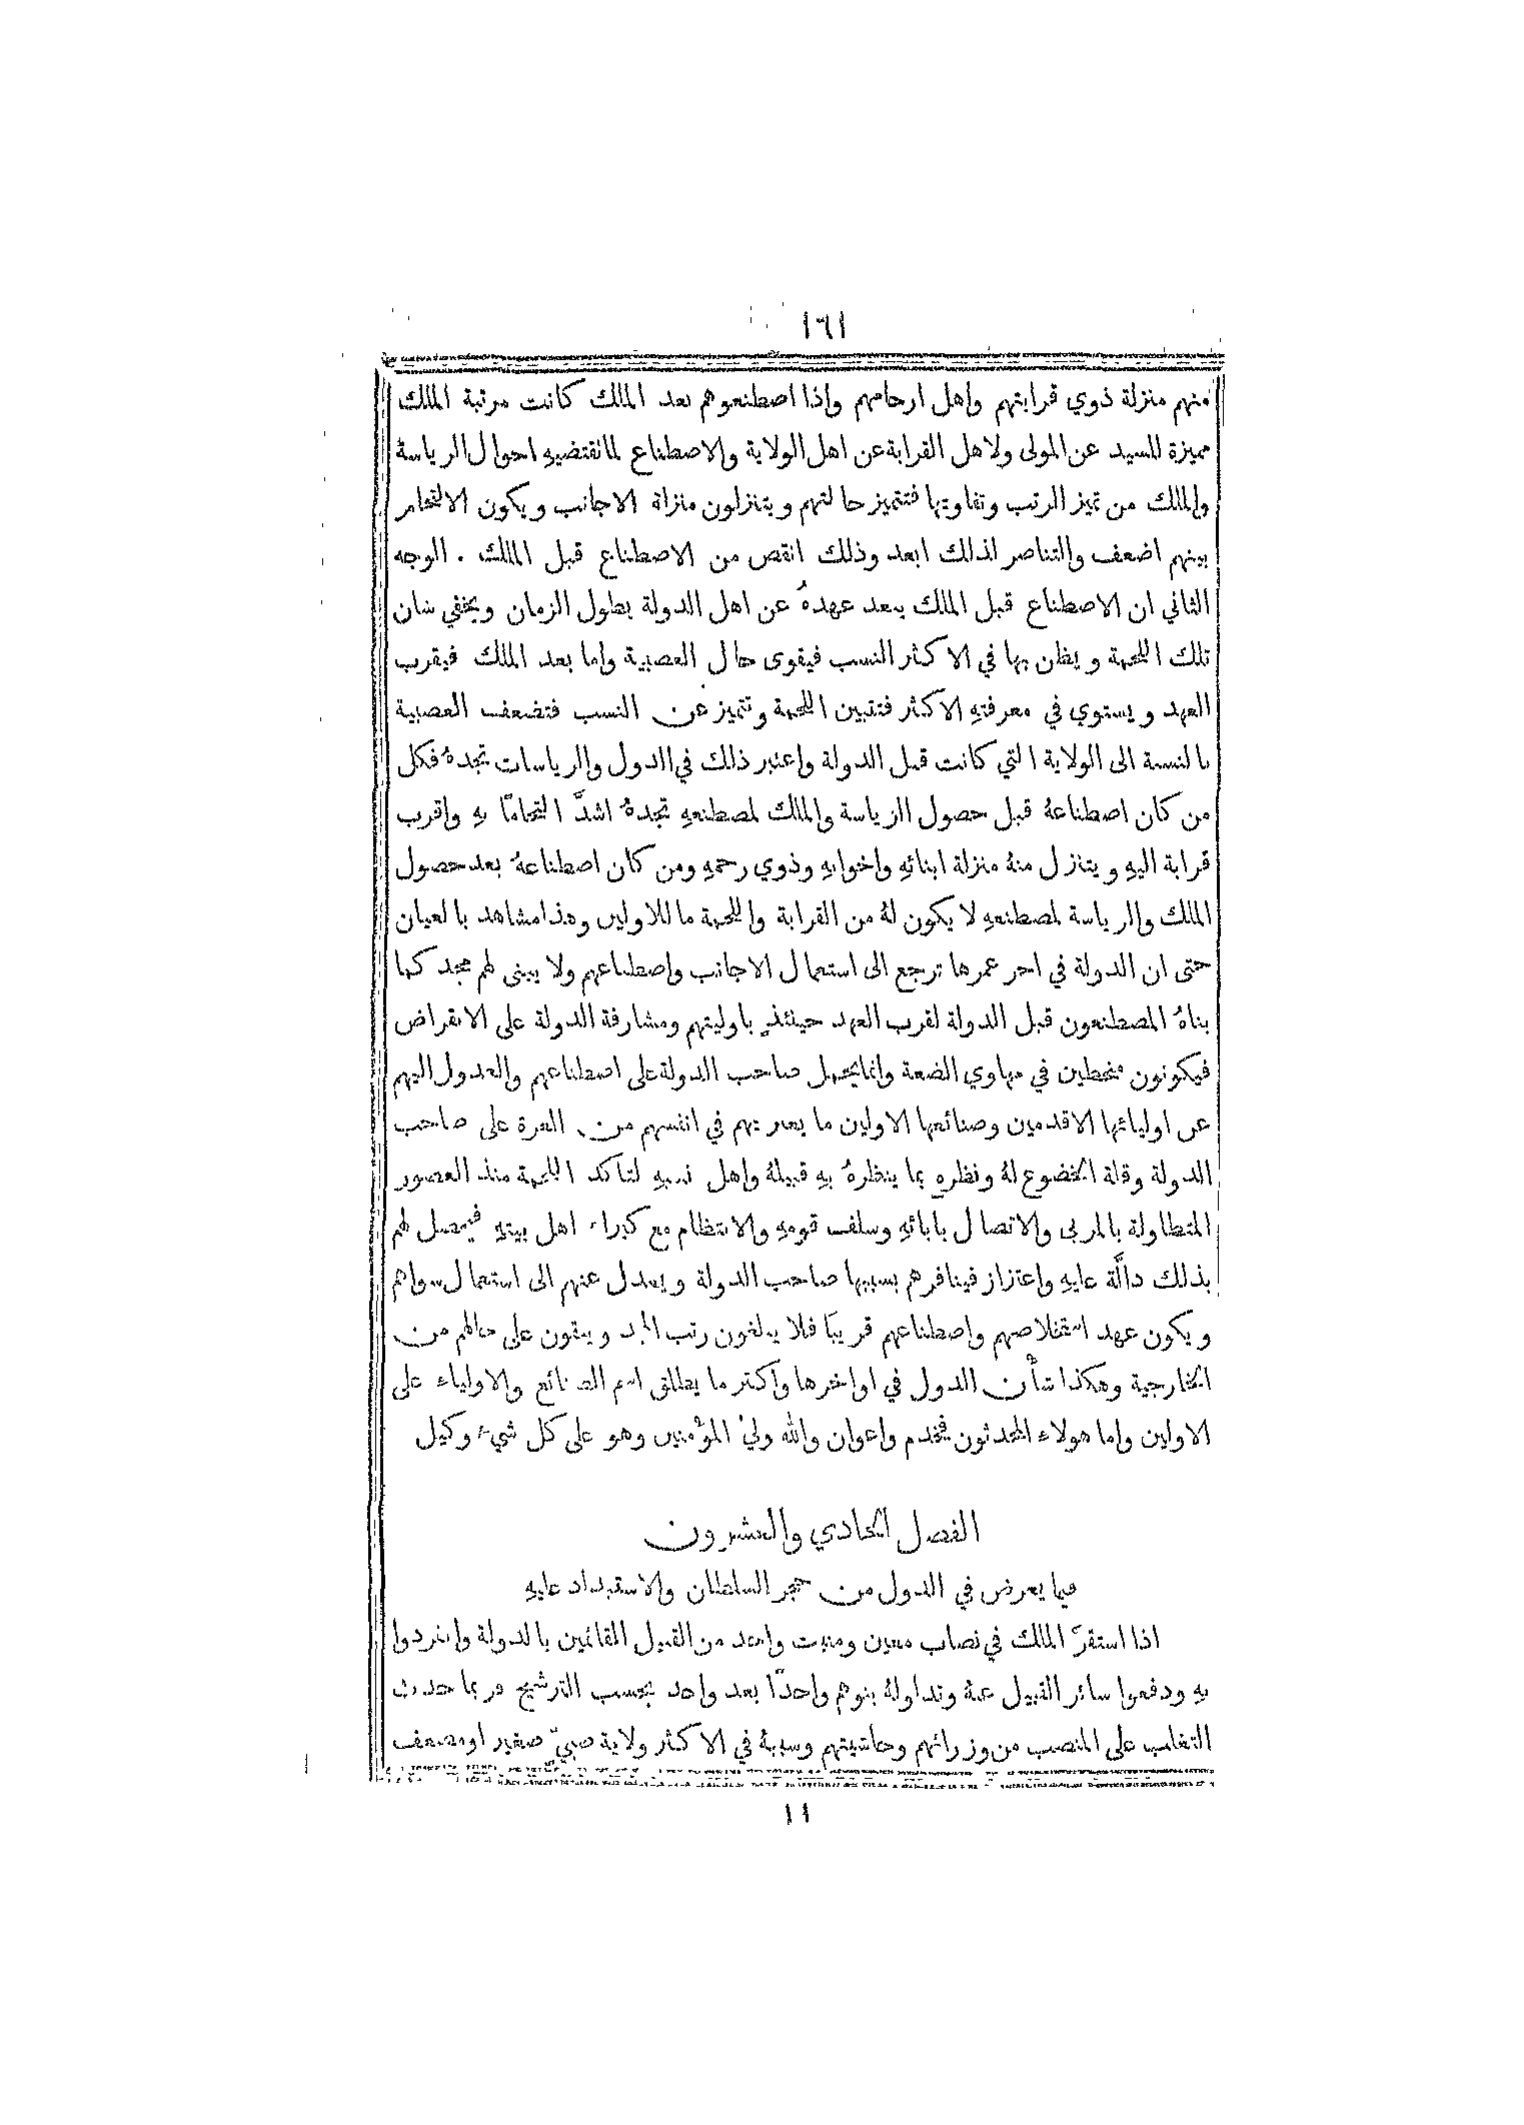 ١٦١
منهم منزلة ذوي قرابتهم واهل ارحامهم واذا اصطنعوهم بعد الملك كانت مرتبة الملك
مميزة للسيد عن المولى ولاهل القرابة عن اهل الولاية والاصطناع لما تقتضيهِ احوال الرياسة
والملك من تميز الرتب وتفاوتها فتتميز حالتهم ويتنزلون منزلة الاجانب ويكون الالتحام
بينهم اضعف والتناصر لذلك ابعد وذلك انقص من الاصطناع قبل الملك . الوجه
الثاني ان الاصطناع قبل الملك يبعد عهدهُ عن اهل الدولة بطول الزمان ويخفي شان
تلك اللحمة ويظن بها في الاكثر النسب فيقوى حال العصبية واما بعد الملك فيقرب
العهد ويستوي في معرفتهِ الاكثر فتتبين اللحمة وتتميز عن النسب فتضعف العصبية
بالنسبة الى الولاية التي كانت قبل الدولة واعتبر ذلك في الدول والرياسات تجدهُ فكل
من كان اصطناعهُ قبل حصول الرياسة والملك لمصطنعهِ تجدهُ اشدَّ التحامًا بهِ واقرب
قرابة اليهِ ويتنزل منهُ منزلة ابنائهِ واخوانهِ وذوي رحمهِ ومن كان اصطناعهُ بعد حصول
الملك والرياسة لمصطنعهِ لا يكون لهُ من القرابة واللحمة ما للاولين وهذا مشاهد بالعيان
حتى ان الدولة في اخر عمرها ترجع الى استعمال الاجانب واصطناعهم ولا يبنى لهم مجد كما
بناهُ المصطنعون قبل الدولة لقرب العهد حينئذٍ باوليتهم ومشارفة الدولة على الانقراض
فيكونون منحطين في مهاوي الضعة وانما يحمل صاحب الدولة على اصطناعهم والعدول اليهم
عن اوليائها الاقدمين وصنائعها الاولين ما يعتريهم في انفسهم من العزة على صاحب
الدولة وقلة الخضوع لهُ ونظرهِ بما ينظرهُ بهِ قبيلهُ واهل نسبهِ لتاكد اللحمة منذ العصور
المتطاولة بالمربى والاتصال بابائهِ وسلف قومهِ والانتظام مع كبراء اهل بيتهِ فيحصل لهم
بذلك دالَّة عليهِ واعتزاز فينافرهم بسببها صاحب الدولة ويعدل عنهم الى استعمال سواهم
ويكون عهد استخلاصهم واصطناعهم قريبًا فلا يبلغون رتب المجد ويبقون على حالهم من
الخارجية وهكذا شأن الدول في اواخرها واكثر ما يطلق اسم الصنائع والاولياء على
الاولين واما هولاء المحدثون فخدم واعوان والله وليُّ المؤمنين وهو على كل شيء وكيل
الفصل الحادي والعشرون
فيما يعرض في الدول من حجر السلطان والاستبداد عليهِ
اذا استقرَّ الملك في نصاب معين ومنبت واحد من القبيل القائمين بالدولة وانفردوا
بهِ ودفعوا سائر القبيل عنهُ وتداولهُ بنوهم واحدًا بعد واحد بحسب الترشيح فربما حدث
التغلب على المنصب من وزرائهم وحاشيتهم وسببهُ في الاكثر ولاية صبيّ صغير او مضعف
١١